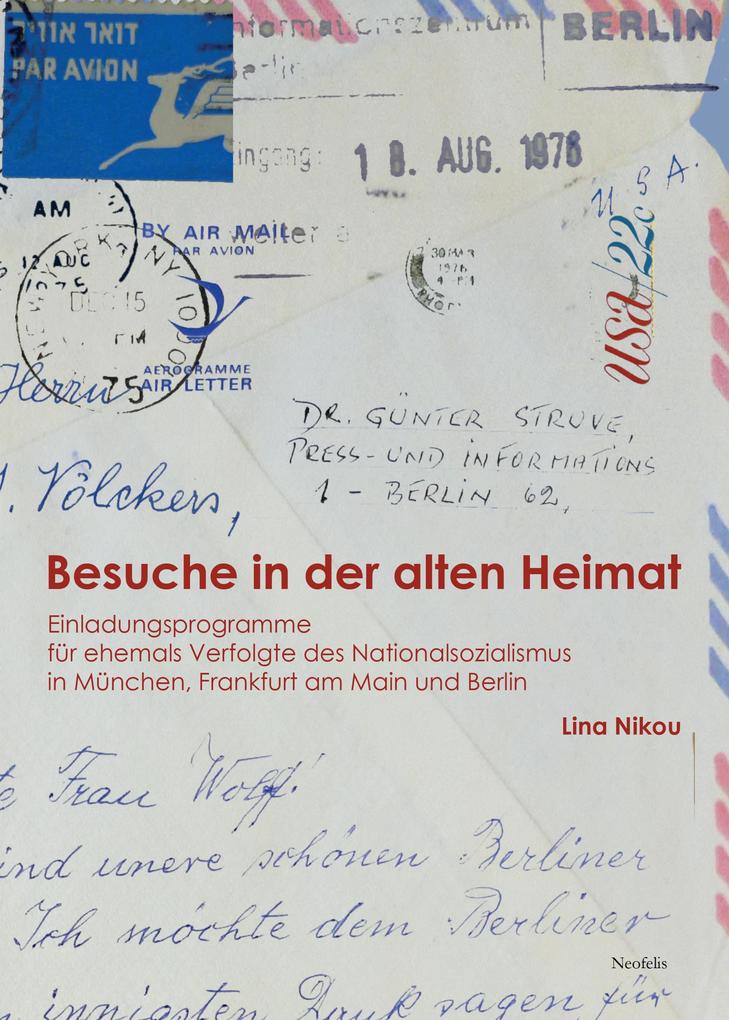 דואר אוויר
PAR AVION
Informationszentrum
Berlin
BERLIN
Eingang:
18. AUG. 1976
weiter a
U S A.
usa 22c
AM
12 AUG
75
BY AIR MAIL
PAR AVION
30 MAR
1976
NEW YORK, NY 100
DEC 15
PM
75
AEROGRAMME
AIR LETTER
Herrn
DR. GÜNTER STRUVE,
PRESS-UND INFORMATIONS
1 - BERLIN 62,
. Völckers,
Besuche in der alten Heimat
Einladungsprogramme
für ehemals Verfolgte des Nationalsozialismus
in München, Frankfurt am Main und Berlin
Lina Nikou
te Frau Wolff!
ind unere schönen Berliner
Ich möchte dem Berliner
Neofelis
innigsten Dank sagen für